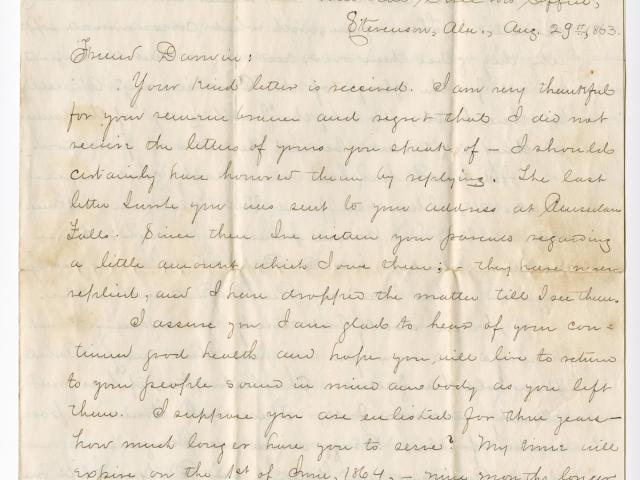 Office,
Stevenson, Ala., Aug. 29th, 1863.
Friend Darwin:
Your kind letter is received. I am very thankful
for your remembrance and regret that I did not
receive the letters of yours you speak of – I should
certainly have honored them by replying. The last
letter I wrote you was sent to your address at
Falls. Since then I've written your parents regarding
a little amount which I owe them; – they have never
replied, and I have dropped the matter till I see them.
I assure you I am glad to hear of your con=
tinued good health and hope you will live to return
to your people sound in mind and body as you left
them. I suppose you are enlisted for three years –
how much longer have you to serve? My time will
expire on the 1st of June, 1864, – nine months longer